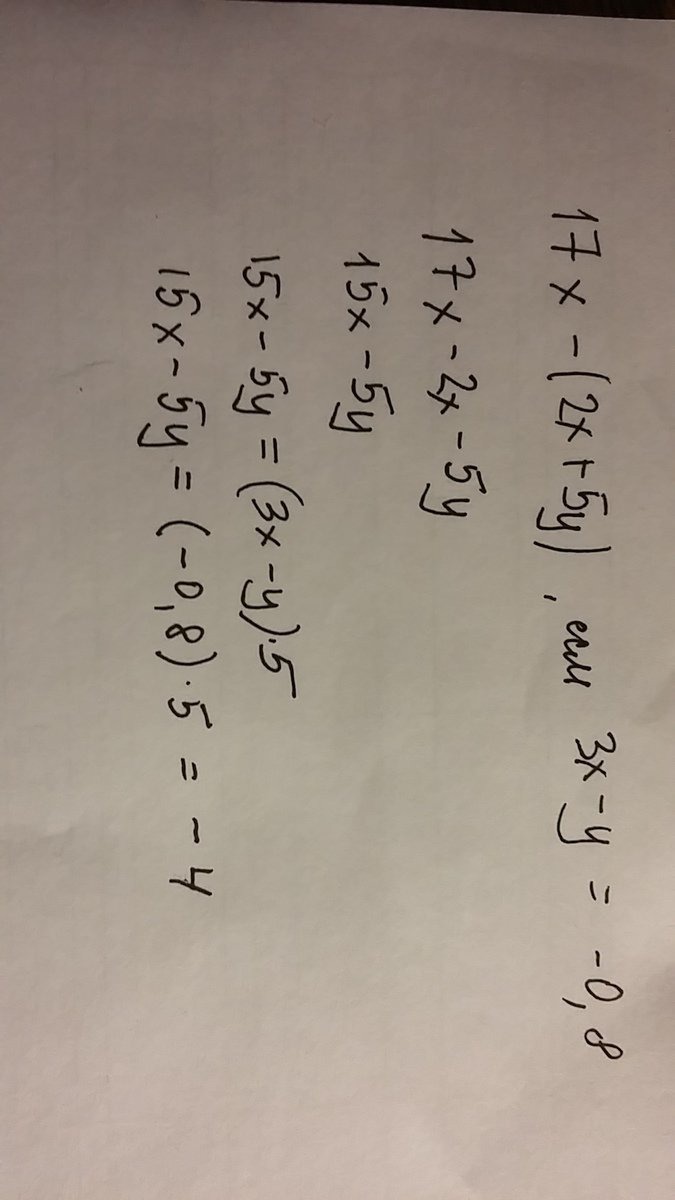 17x-(2x+5y), если 3x-y = -0,8
17x-2x-5y
15x-5y
15x-5y=(3x-y)·5
15x-5y=(-0,8)·5 = -4